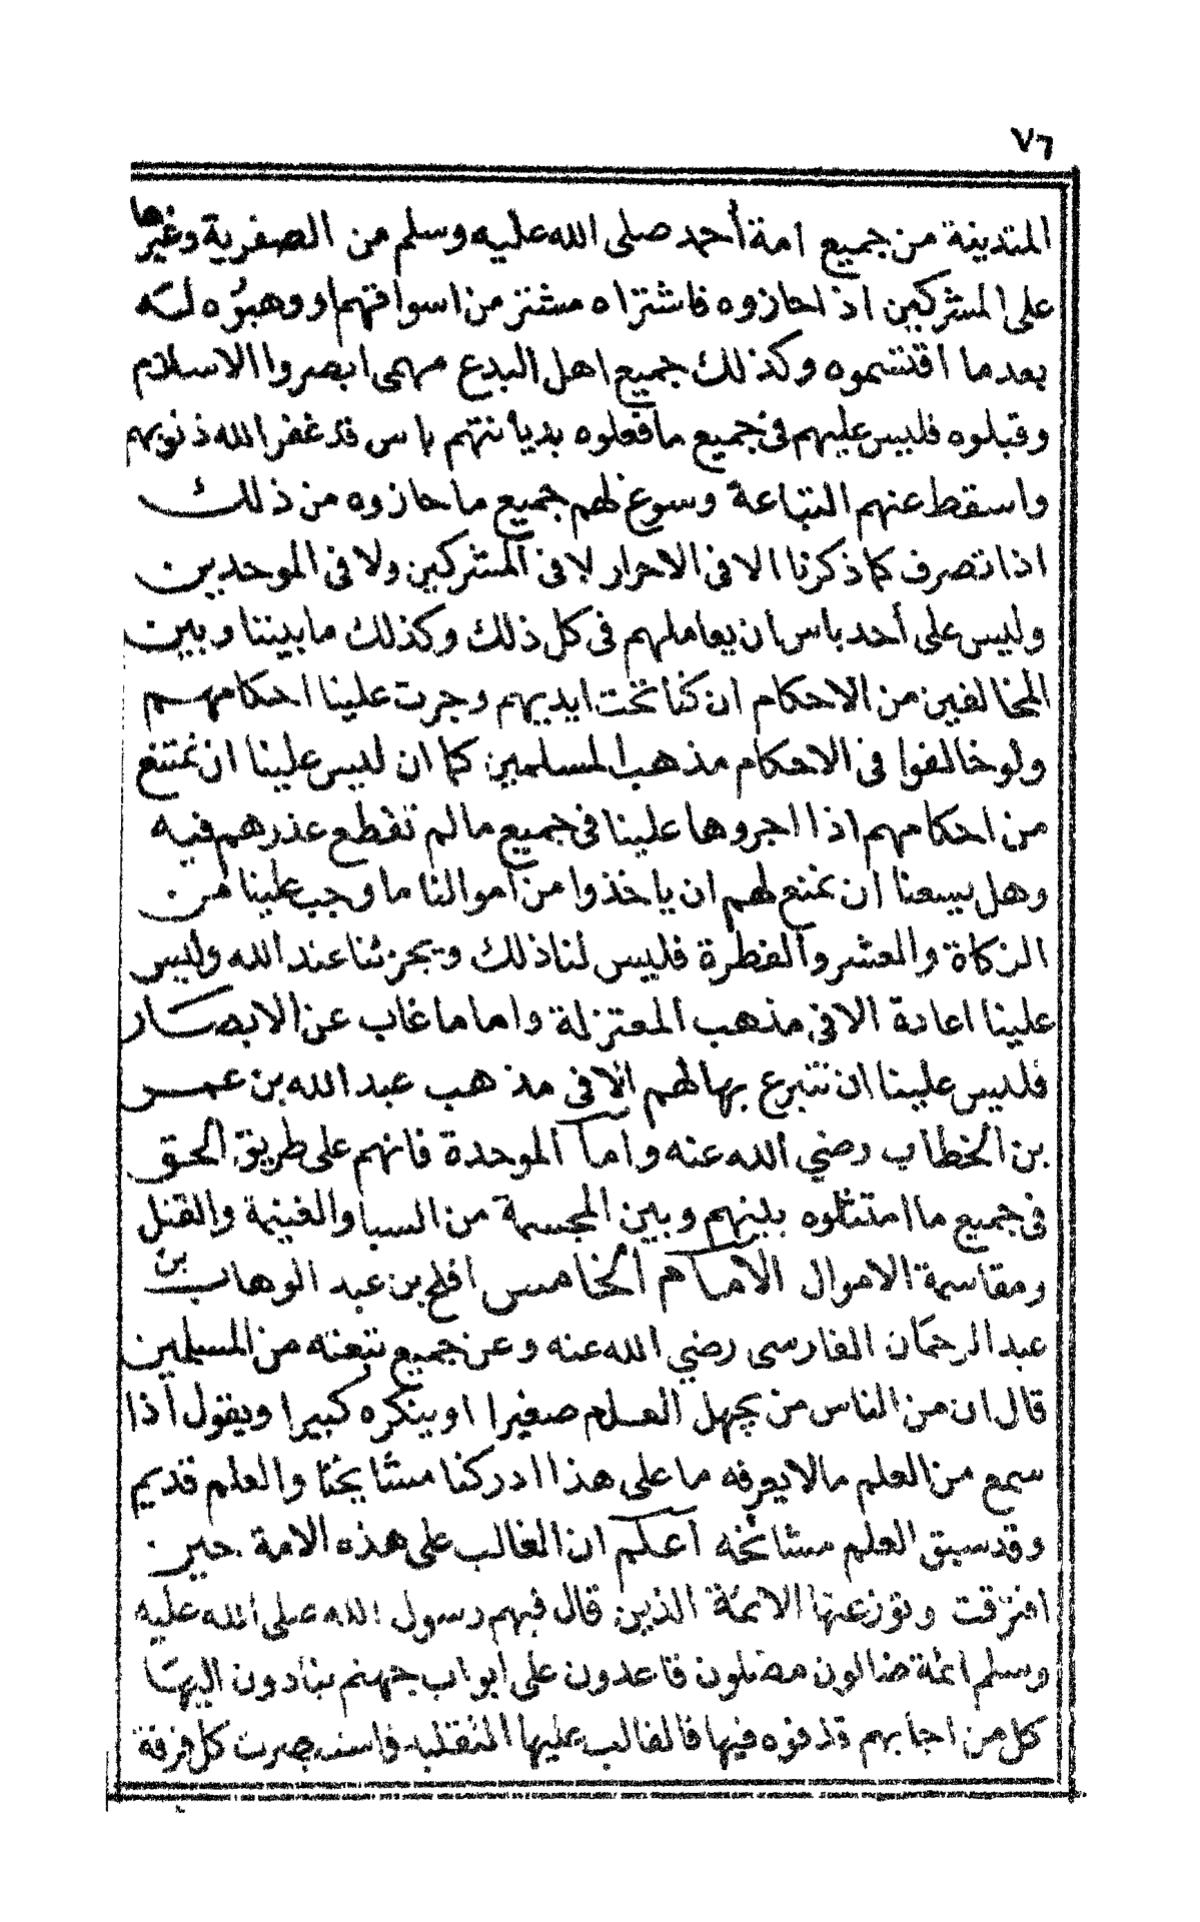 ٧٦
المتدينة من جميع امة أحمد صلى الله عليه وسلم من الصفرية وغيرها
على المشركين اذ احازوه فاشتراه مشتر من اسواقهم او وهبوه له
بعد ما اقتسموه وكذلك جميع اهل البدع مهمى ابصروا الاسلام
وقبلوه فليس عليهم فى جميع ما فعلوه بديانتهم باس قد غفر الله ذنوبهم
واسقط عنهم التباعة وسوغ لهم جميع ما حازوه من ذلك
اذا تصرف كما ذكرنا الا فى الاحرار لا فى المشركين ولا فى الموحدين
وليس على أحد باس ان يعاملهم فى كل ذلك وكذلك ما بيننا وبين
المخالفين من الاحكام ان كنا تحت ايديهم وجرت علينا احكامهم
ولو خالفوا فى الاحكام مذهب المسلمين كما ان ليس علينا ان نمتنع
من احكامهم اذا اجروها علينا فى جميع ما لم تقطع عذرهم فيه
وهل يسعنا ان نمنع لهم ان ياخذوا من أموالنا ما وجب علينا من
الزكاة والعشر والفطرة فليس لنا ذلك ويجزئنا عند الله وليس
علينا اعادة الا فى مذهب المعتزلة واما ما غاب عن الابصار
فليس علينا ان نتبرع بها لهم الا فى مذهب عبد الله بن عمر
بن الخطاب رضي الله عنه وأما الموحدة فانهم على طريق الحق
فى جميع ما امتثلوه بينهم وبين المجسمة من السبا والغنيمة والقتل
ومقاسمة الاموال الامام الخامس افلح بن عبد الوهاب بن
عبد الرحمان الفارسى رضي الله عنه وعن جميع تبعته من المسلمين
قال ان من الناس من يجهل العلم صغيرا او ينكره كبيرا ويقول أذا
سمع من العلم ما لا يعرفه ما على هذا ادركنا مشايخنا والعلم قديم
وقد سبق العلم مشائخه أعلم ان الغالب على هذه الامة حين
افترقت وتوزعتها الائمة الذين قال فيهم رسول الله صلى الله عليه
وسلم ائمة ضالون مضلون قاعدون على ابواب جهنم ينادون اليها
كل من اجابهم قذفوه فيها فالغالب عليها التقليد فاستبصرت كل فرقة